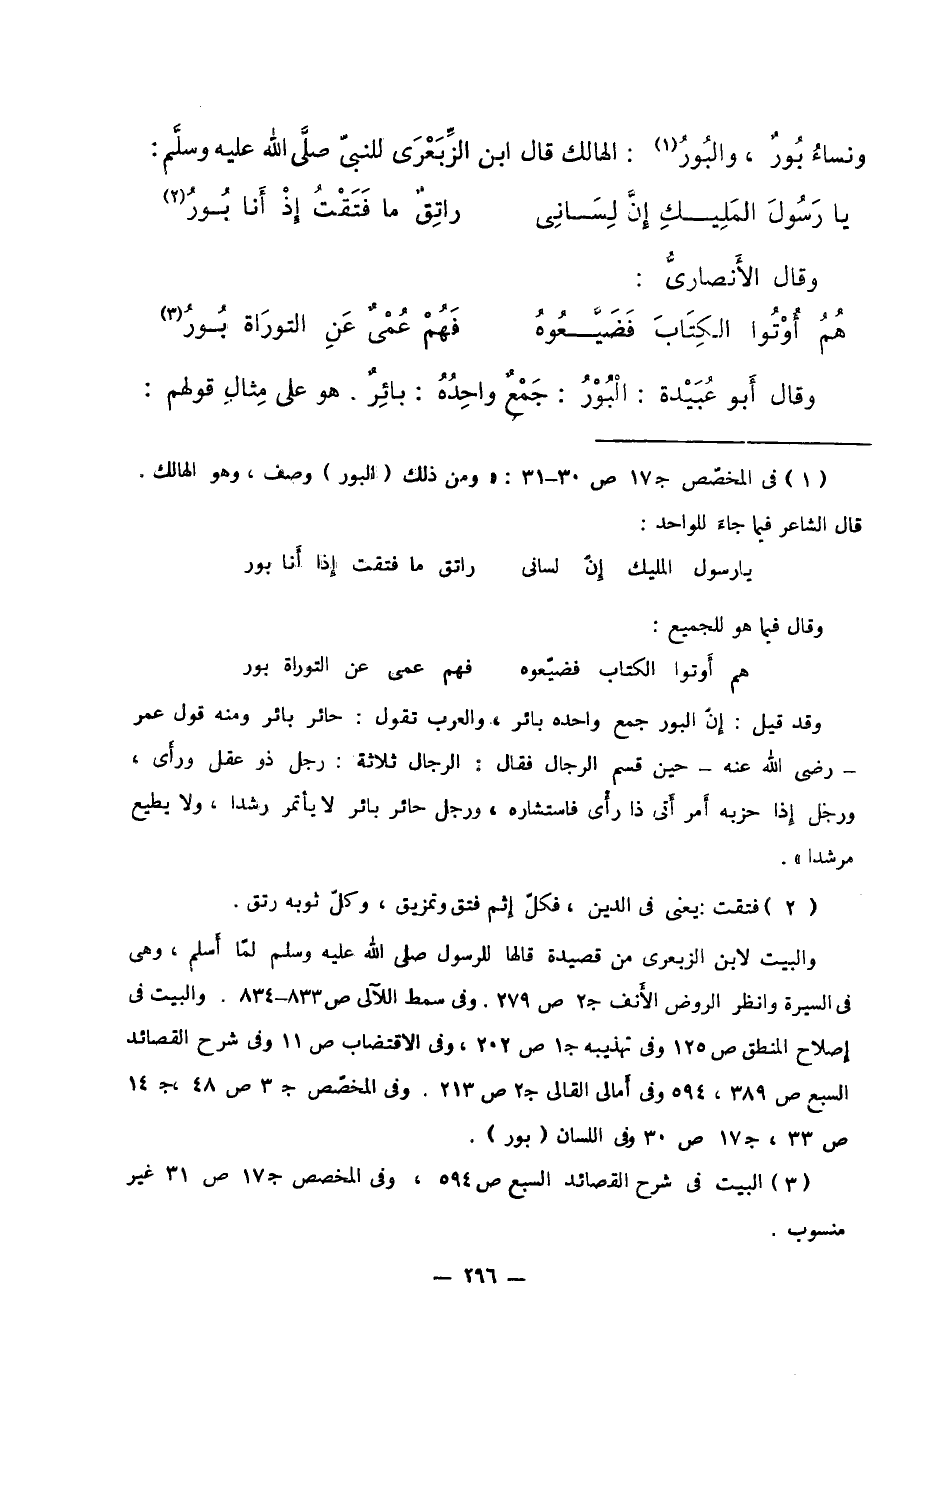 ونساءُ بُورٌ ، والبُورُ(١) : الهالك قال ابن الزِّبَعْرَى للنبيّ صلَّى الله عليه وسلَّم :
يا رَسُولَ المَلِيــكِ إنَّ لِسَــانِى راتِقٌ ما فَتَقْتُ إذْ أَنا بُــورُ(٢)
وقال الأَنصارىُّ :
هُمُ أُوْتُوا الكِتَابَ فَضَيَّــعُوهُ فَهُمْ عُمْىٌ عَنِ التورَاة بُــورُ(٣)
وقال أَبو عُبَيْدة : الْبُوْرُ : جَمْعٌ واحِدُهُ : بائِرٌ . هو على مِثالِ قولهم :
( ١ ) فى المخصّص جـ١٧ ص ٣٠–٣١ : « ومن ذلك ( البور ) وصف ، وهو الهالك .
قال الشاعر فيما جاءَ للواحد :
يارسول المليك إنّ لسانى راتق ما فتقت إذا أَنا بور
وقال فيما هو للجميع :
هم أَوتوا الكتاب فضيّعوه فهم عمى عن التوراة بور
وقد قيل : إنّ البور جمع واحده بائر ، والعرب تقول : حائر بائر ومنه قول عمر
– رضى الله عنه – حين قسم الرجال فقال : الرجال ثلاثة : رجل ذو عقل ورأى ،
ورجل إذا حزبه أمر أتى ذا رأى فاستشاره ، ورجل حائر بائر لا يأتمر رشدا ، ولا يطيع
مرشدا » .
( ٢ ) فتقت : يعنى فى الدين ، فكلّ إثم فتق وتمزيق ، وكلّ ثوبه رتق .
والبيت لابن الزبعرى من قصيدة قالها للرسول صلى الله عليه وسلم لمّا أسلم ، وهى
فى السيرة وانظر الروض الأَنف جـ٢ ص ٢٧٩ . وفى سمط اللآلى ص ٨٣٣–٨٣٤ . والبيت فى
إصلاح المنطق ص ١٢٥ وفى تهذيبه جـ١ ص ٢٠٢ ، وفى الاقتضاب ص ١١ وفى شرح القصائد
السبع ص ٣٨٩ ، ٥٩٤ وفى أمالى القالى جـ٢ ص ٢١٣ . وفى المخصّص جـ ٣ ص ٤٨ ، جـ ١٤
ص ٣٣ ، جـ١٧ ص ٣٠ وفى اللسان ( بور ) .
( ٣ ) البيت فى شرح القصائد السبع ص ٥٩٤ ، وفى المخصص جـ١٧ ص ٣١ غير
منسوب .
– ٢٩٦ –